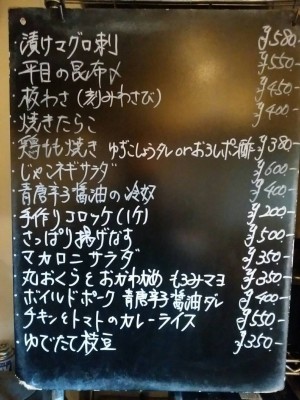 ・漬けマグロ刺 ¥580-
・平目の昆布〆 ¥550-
・板わさ(刻みわさび) ¥450-
・焼きたらこ ¥400-
・鶏もも焼き ゆずこしょうダレorおろしポン酢 ¥380-
・じゃこネギサラダ ¥600-
・青唐辛子醤油の冷奴 ¥400-
・手作りコロッケ(1ケ) ¥200-
・さっぱり揚げなす ¥500-
・マカロニサラダ ¥350-
・丸おくらとおかわかめ もろみマヨ ¥350-
・ボイルドポーク 青唐辛子醤油ダレ ¥400-
・チキンとトマトのカレーライス ¥550-
・ゆでたて枝豆 ¥350-